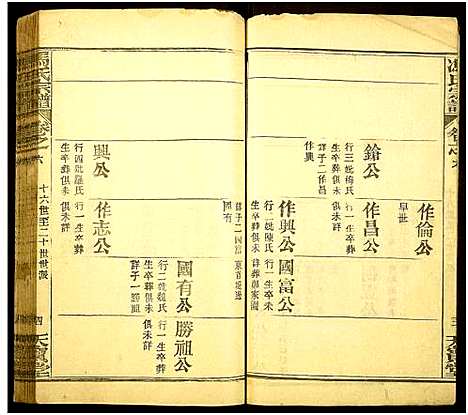 馮氏宗譜
卷之六
作倫公
早世
鎗公
行三娶梅氏
生卒葬俱未詳
子二作昌
作興
作昌公
行一生卒葬
俱未詳
作興公
行二娶陳氏
生卒葬俱未詳
子二國富
國有
國富公
行一生卒未
詳葬
國有公
行二娶魏氏
生卒葬俱未詳
子一勝祖
勝祖公
行一生卒葬
俱未詳
興公
行四娶羅氏
生卒葬俱未詳
作志公
行一生卒葬
俱未詳
馮氏宗譜
卷之六
十六世至二十世世派
四
大會堂